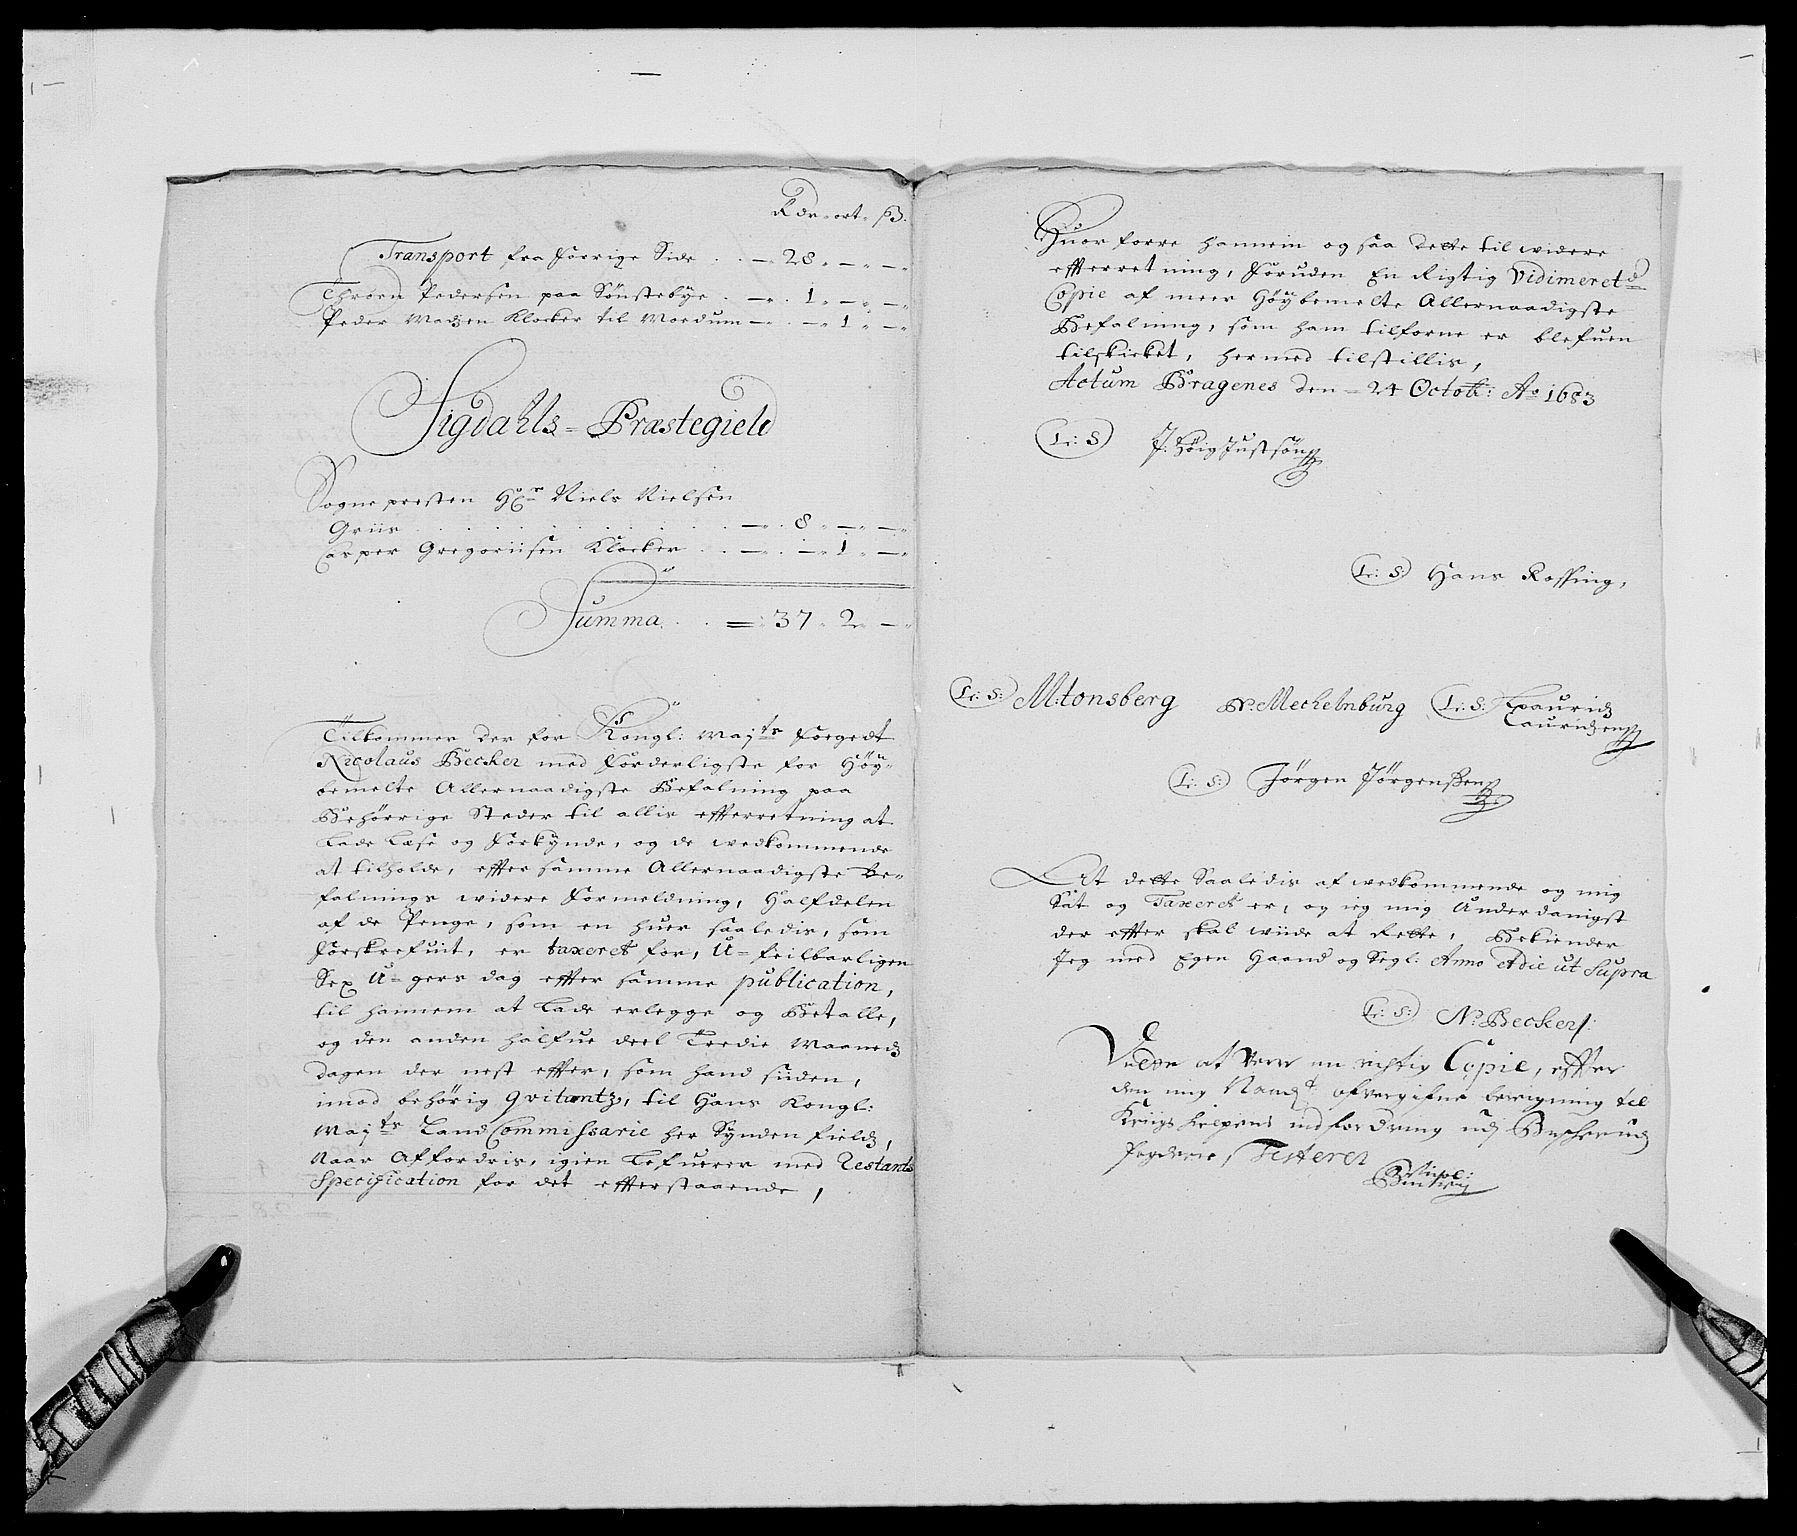 Rdr - ort - ß.
Transport fra Forrige Side . . — 28 - — - —
Throen Pedersen paa Sønstebye . — . 1 - — - —
Peder Madzen Klocker til Modum — . — - 1 - —
Sigdahls = Præstegield
Sogne presten Hr Niels Nielsen
Griis . . . . . . . . . . — . 8 - — - —
Casper Gregoriisen Klocker . . — . — - 1 - —
Summa . . = 37 - 2 - —
Tilkommer der for Kongl: Mayts Foegedt
Nicolaus Becker med Forderligste for Høy-
bemelte Allernaadigste Befalning paa
Behørrige Steder til allis effterretning at
Lade Læse og Forkynde, og de wedkommende
at tilholde, effter samme Allernaadigste Be-
falnings widere Formeldning, Halfdelen
af de Penge, som en huer saaledis, som
Forskrefuit, er taxeret for, U=feilbarligen
Sex U=gers dag effter samme publication,
til hannem at Lade erlegge og Betalle,
og den anden halfue deel Tredie Maaneds
dagen der nest effter, som hand siden,
imod behørig qvitantz, til Hans Kongl:
Mayts Land Commissarie her Synden fields,
Naar Affordris, igien Lefuerer med Restants
Specification for det effterstaaende,
Huor forre hannem og saa Dette til widere
effterretning, Foruden En Rigtig Vidimeret
Copie af meer Høybemelte Allernaadigste
Befalning, som ham tilforne er blefuen
tilskicket, hermed tilstillis,
Actum Bragenes den = 24 Octob: Ao 1683
(L: S) J. Høig Justsøn
(L: S:) Hans Rossing,
(L: S:) M: tonsberg N: Mechelnburg (L: S:) Laurids
Lauridzen
(L: S:) Jørgen Jørgenßen
At dette Saaledis af wedkommende og mig
Sat og Taxeret er, og ieg mig Underdanigst
der effter skal wiide at Rette, Bekiender
Jeg med Egen Haand og Segl: Anno et die ut Supra
(L: S:) N: Becker
at were en rigtig Copie, effter
den mig ofvergifne beregning til
Kriigs hielpens indfordring udj Buscheruds
Fogderie, Testerer